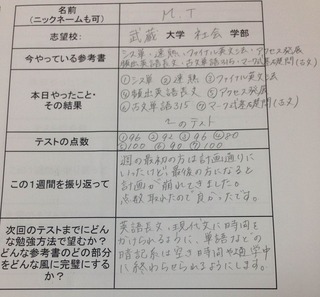 名前
(ニックネームも可)
M.T
志望校:
武蔵 大学 社会 学部
今やっている参考書
シス単・速熟・ファイナル英文法・アクセス発展
頻出英語長文・古文単語315・マーク式基礎問(古文)
本日やったこと・
その結果
①シス単 ②速熟 ③ファイナル英文法
④頻出英語長文 ⑤アクセス発展
⑥古文単語315 ⑦マーク式基礎問(古文)
のテスト
テストの点数
①96 ②92 ③96 ④80
⑤100 ⑥90 ⑦100
この1週間を振り返って
週の最初の方は計画通りに
いったけど、最後の方になると
計画が崩れてきました。
点数取れたので良かったです。
次回のテストまでにどん
な勉強方法で望むか?
どんな参考書のどの部分
をどんな風に完璧にする
か?
英語長文、現代文に時間を
かけられるように、単語などの
暗記系は空き時間や通学中
に終わらせられるようにします。